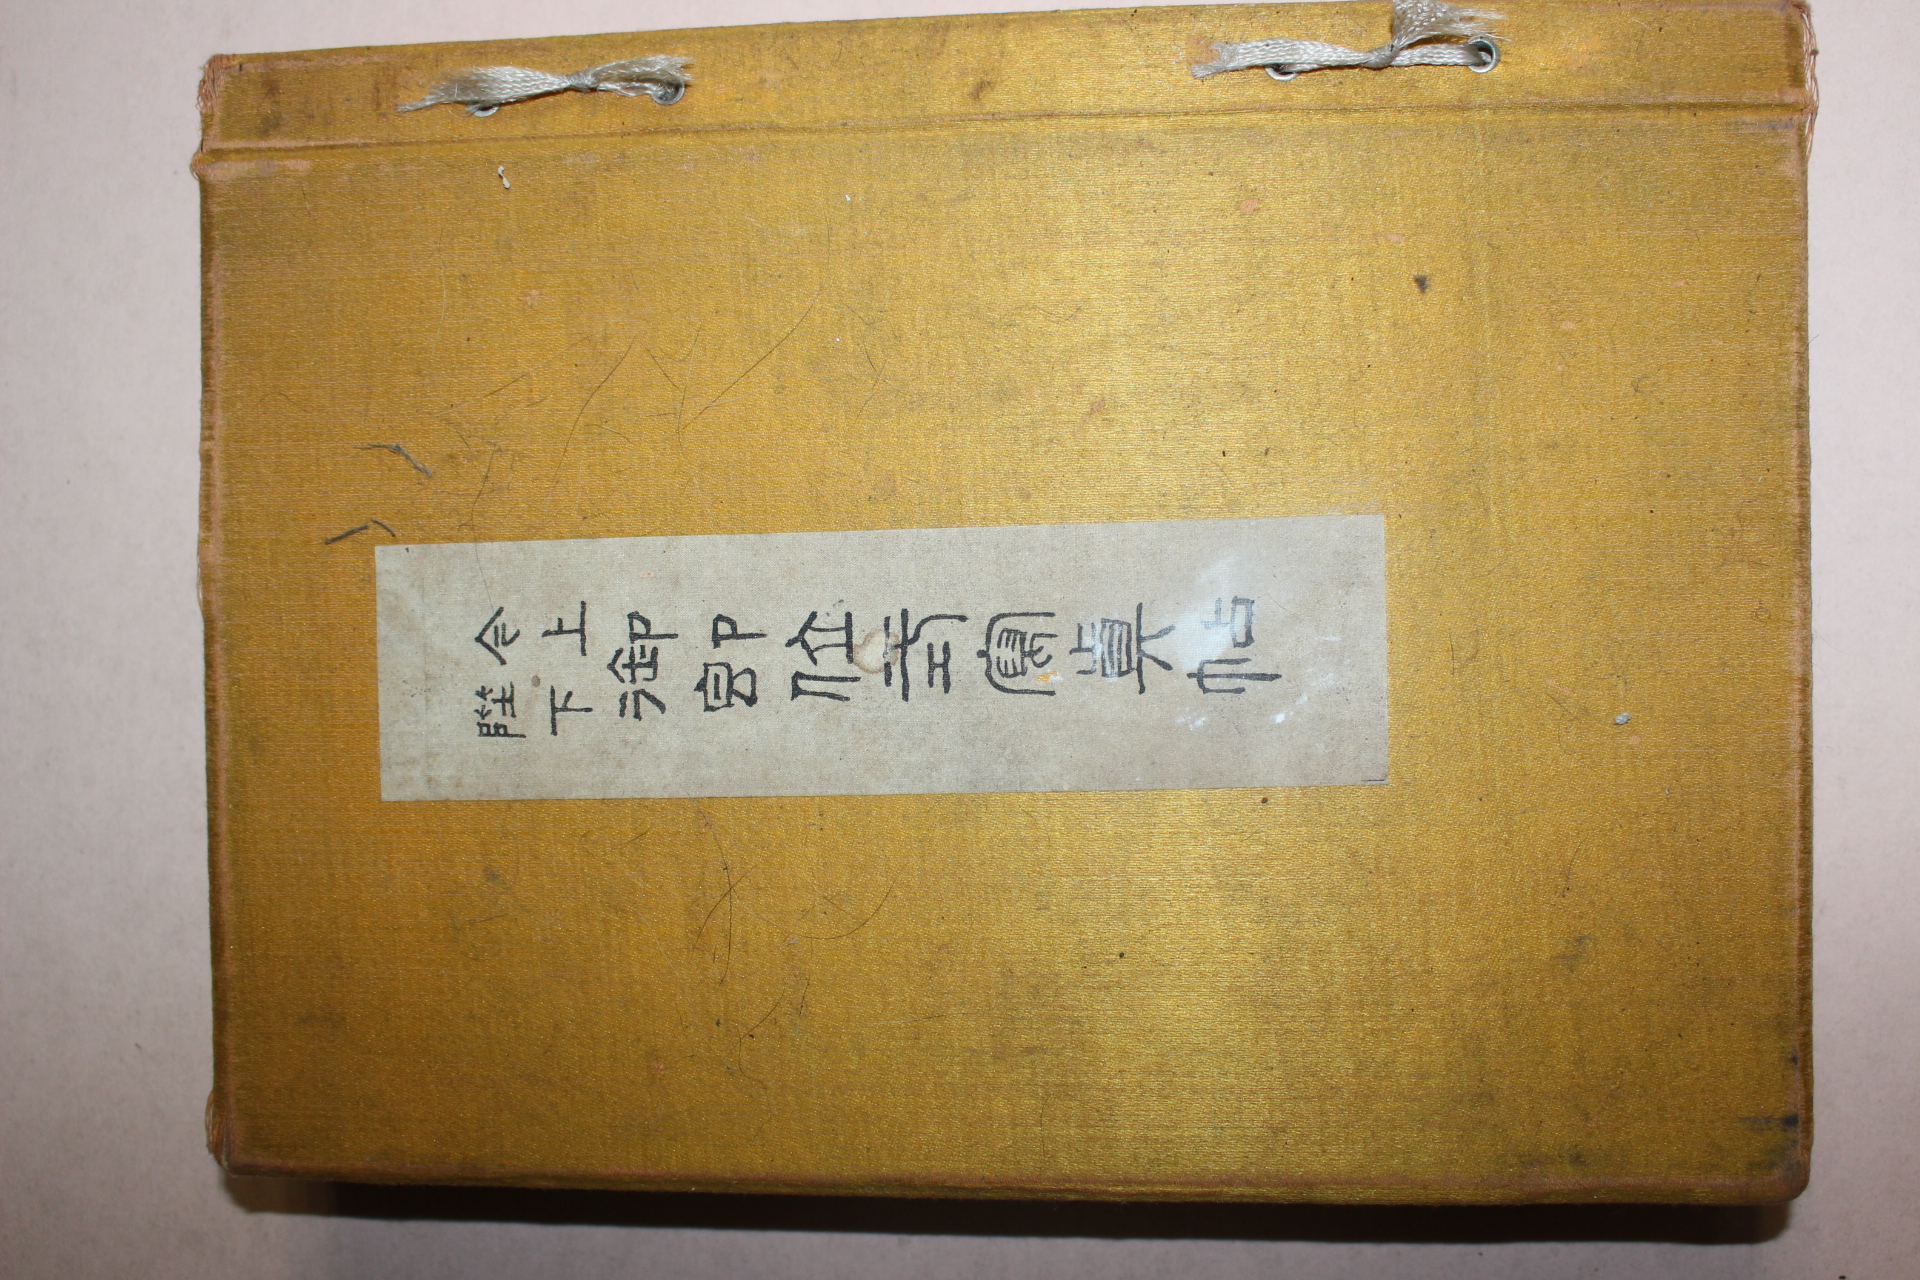 今上陛下御即位式寫眞帖